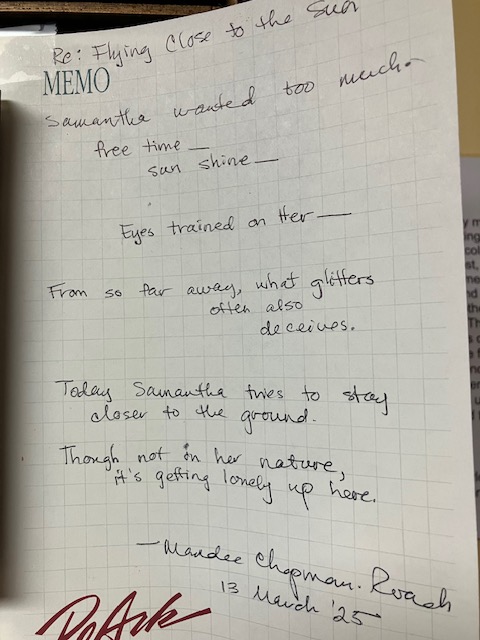 Re: Flying Close to the Sun
MEMO
Samantha wanted too much.
free time —
sun shine —
Eyes trained on Her —
From so far away, what glitters
often also
deceives.
Today Samantha tries to stay
closer to the ground.
Though not in her nature,
it's getting lonely up here.
— Maudee Chapman-Roach
13 March '25